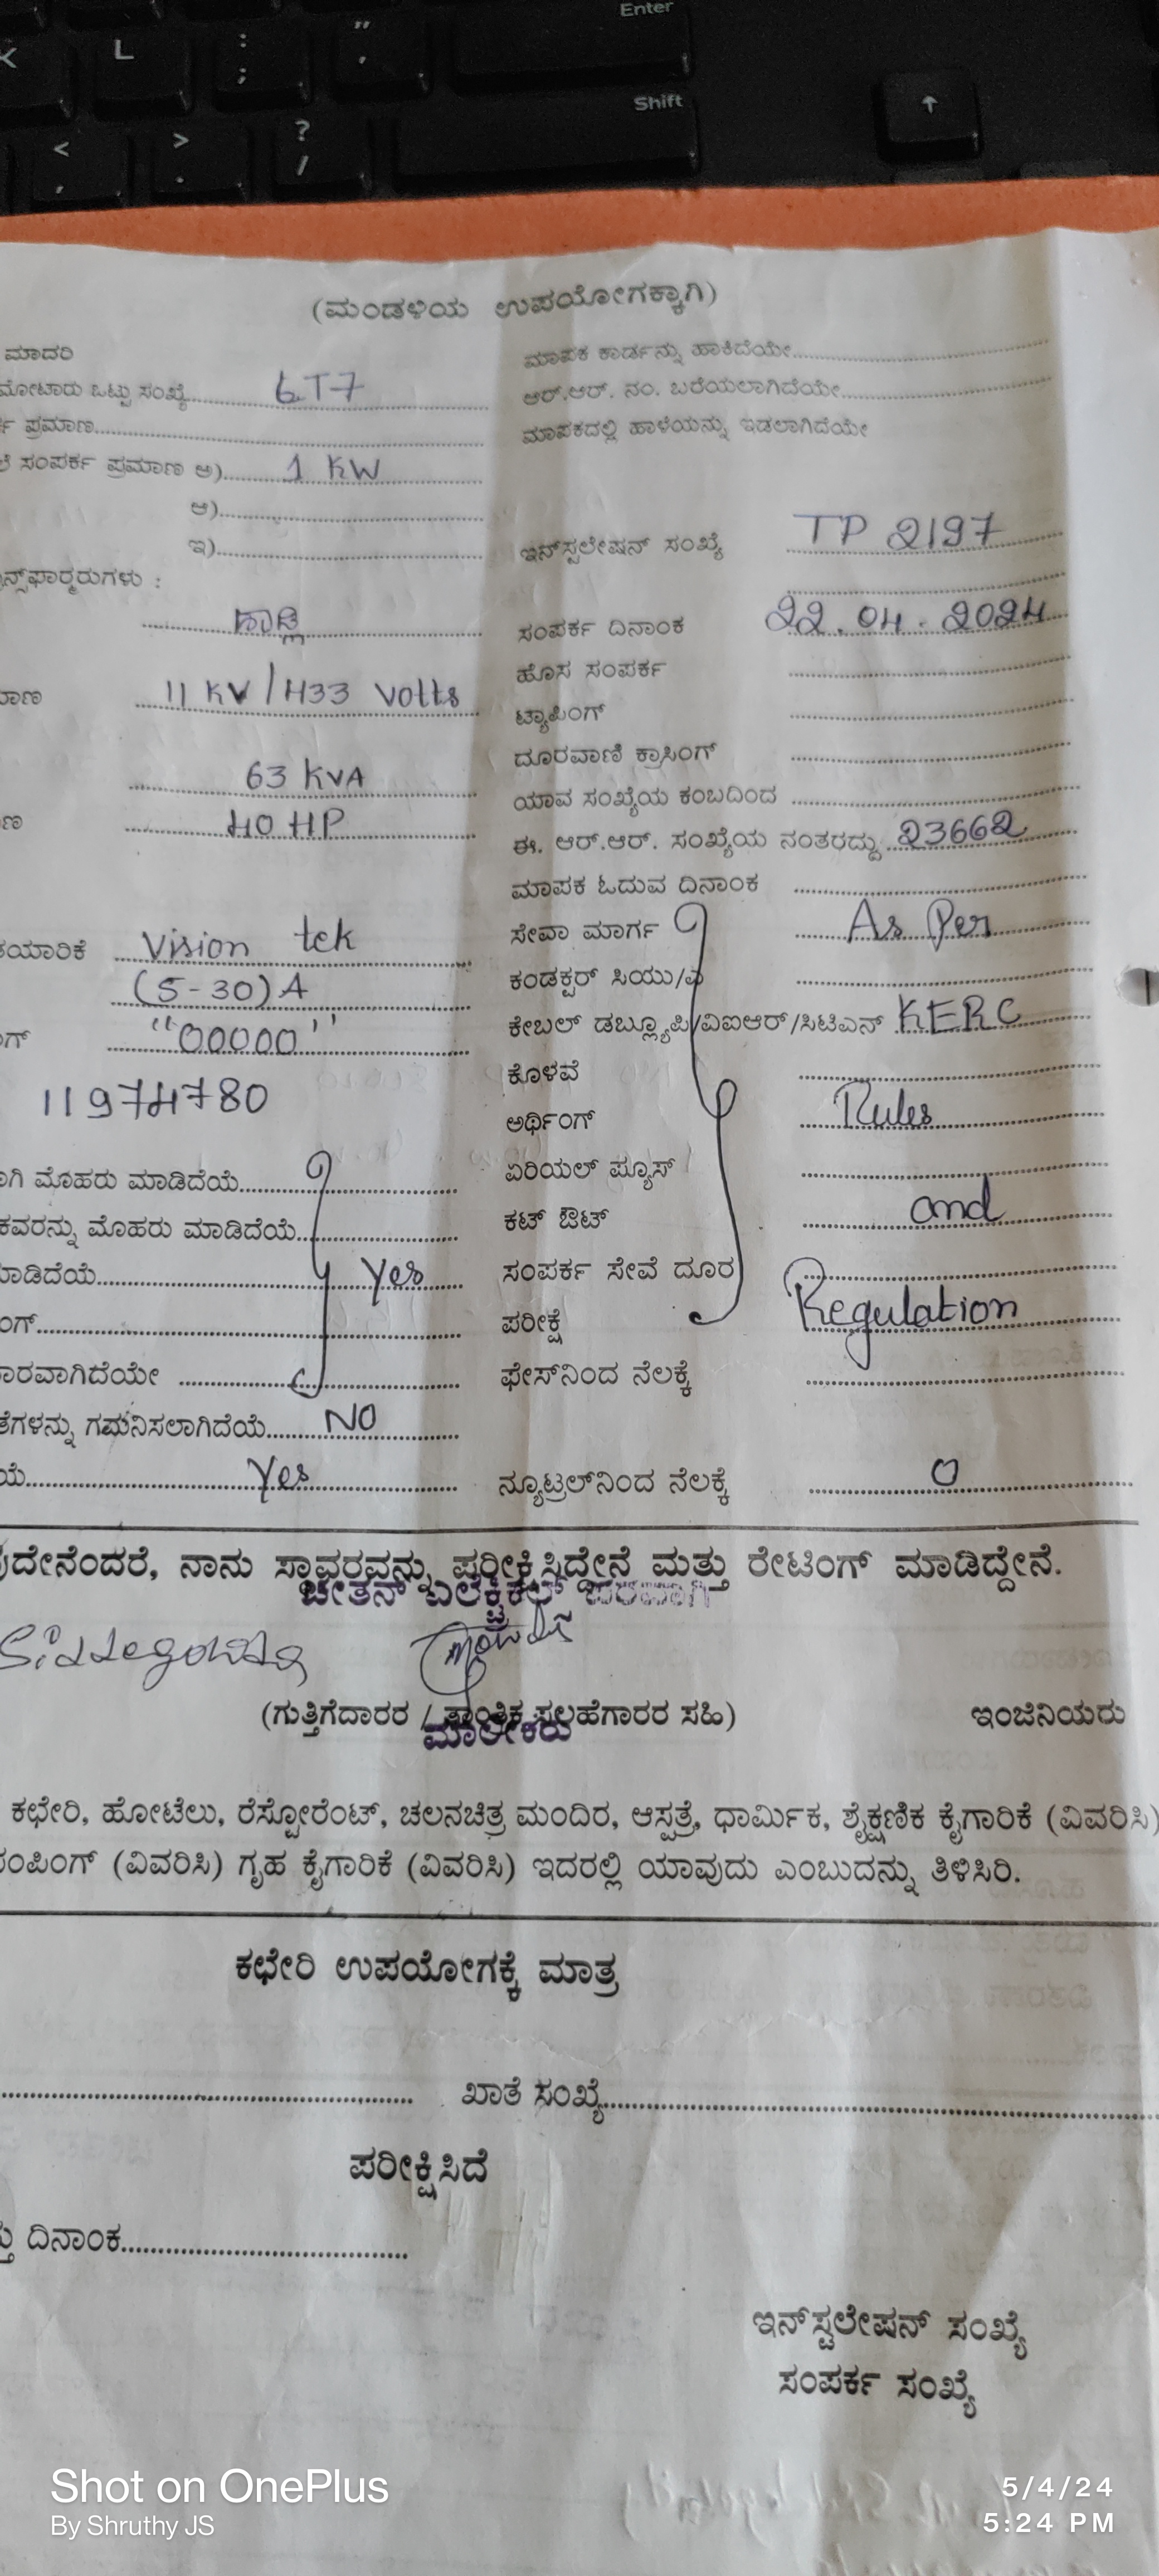 Enter
K L : ; " '
Shift
< , > . ? / ↑
(ಮಂಡಳಿಯ ಉಪಯೋಗಕ್ಕಾಗಿ)
ಮಾದರಿ
ಮಾಪಕ ಕಾರ್ಡನ್ನು ಹಾಕಿದೆಯೇ
ಮೋಟಾರು ಒಟ್ಟು ಸಂಖ್ಯೆ LT7
ಆರ್.ಆರ್. ನಂ. ಬರೆಯಲಾಗಿದೆಯೇ
ಪ್ರಮಾಣ
ಮಾಪಕದಲ್ಲಿ ಹಾಳೆಯನ್ನು ಇಡಲಾಗಿದೆಯೇ
ಸಂಪರ್ಕ ಪ್ರಮಾಣ ಅ) 1 KW
ಆ)
ಇನ್‌ಸ್ಟಲೇಷನ್ ಸಂಖ್ಯೆ TP 2197
ಇ)
ನ್ಸ್‌ಫಾರ್ಮರುಗಳು :
ಸಂಪರ್ಕ ದಿನಾಂಕ 22.04.2024
ಹೊಸ ಸಂಪರ್ಕ
ಮಾಣ 11 KV/433 Volts
ಟ್ಯಾಪಿಂಗ್
ದೂರವಾಣಿ ಕ್ರಾಸಿಂಗ್
63 KVA
ಯಾವ ಸಂಖ್ಯೆಯ ಕಂಬದಿಂದ
ಣ 40 HP
ಈ. ಆರ್.ಆರ್. ಸಂಖ್ಯೆಯ ನಂತರದ್ದು 23662
ಮಾಪಕ ಓದುವ ದಿನಾಂಕ
ತಯಾರಿಕೆ Vision tek
ಸೇವಾ ಮಾರ್ಗ As Per
(5-30)A
ಕಂಡಕ್ಟರ್ ಸಿಯು/ಎ
ಗ್ "00000"
ಕೇಬಲ್ ಡಬ್ಲ್ಯೂಪಿ/ವಿಐಆರ್/ಸಿಟಿಎನ್ KERC
11974780
ಕೊಳವೆ
ಅರ್ಥಿಂಗ್ Rules
ಗಿ ಮೊಹರು ಮಾಡಿದೆಯೆ
ಏರಿಯಲ್ ಫ್ಯೂಸ್
ಕವರನ್ನು ಮೊಹರು ಮಾಡಿದೆಯೆ
ಕಟ್ ಔಟ್ and
ಮಾಡಿದೆಯೆ Yes
ಸಂಪರ್ಕ ಸೇವೆ ದೂರ
ಂಗ್
ಪರೀಕ್ಷೆ Regulation
ಾರವಾಗಿದೆಯೇ
ಫೇಸ್‌ನಿಂದ ನೆಲಕ್ಕೆ
ತೆಗಳನ್ನು ಗಮನಿಸಲಾಗಿದೆಯೆ NO
ಯೆ Yes
ನ್ಯೂಟ್ರಲ್‌ನಿಂದ ನೆಲಕ್ಕೆ 0
ುದೇನೆಂದರೆ, ನಾನು ಸ್ಥಾವರವನ್ನು ಪರೀಕ್ಷಿಸಿದ್ದೇನೆ ಮತ್ತು ರೇಟಿಂಗ್ ಮಾಡಿದ್ದೇನೆ.
ಚೇತನ್ ಎಲೆಕ್ಟ್ರಿಕಲ್ ಪರವಾಗಿ
Siddegowda
(ಗುತ್ತಿಗೆದಾರರ / ತಾಂತ್ರಿಕ ಸಲಹೆಗಾರರ ಸಹಿ) ಇಂಜಿನಿಯರು
ಮಾಲೀಕರು
ಕಛೇರಿ, ಹೋಟೆಲು, ರೆಸ್ಟೋರೆಂಟ್, ಚಲನಚಿತ್ರ ಮಂದಿರ, ಆಸ್ಪತ್ರೆ, ಧಾರ್ಮಿಕ, ಶೈಕ್ಷಣಿಕ ಕೈಗಾರಿಕೆ (ವಿವರಿಸಿ)
ಂಪಿಂಗ್ (ವಿವರಿಸಿ) ಗೃಹ ಕೈಗಾರಿಕೆ (ವಿವರಿಸಿ) ಇದರಲ್ಲಿ ಯಾವುದು ಎಂಬುದನ್ನು ತಿಳಿಸಿರಿ.
ಕಛೇರಿ ಉಪಯೋಗಕ್ಕೆ ಮಾತ್ರ
ಖಾತೆ ಸಂಖ್ಯೆ
ಪರೀಕ್ಷಿಸಿದೆ
ತು ದಿನಾಂಕ
ಇನ್‌ಸ್ಟಲೇಷನ್ ಸಂಖ್ಯೆ
ಸಂಪರ್ಕ ಸಂಖ್ಯೆ
Shot on OnePlus
By Shruthy JS
5/4/24
5:24 PM